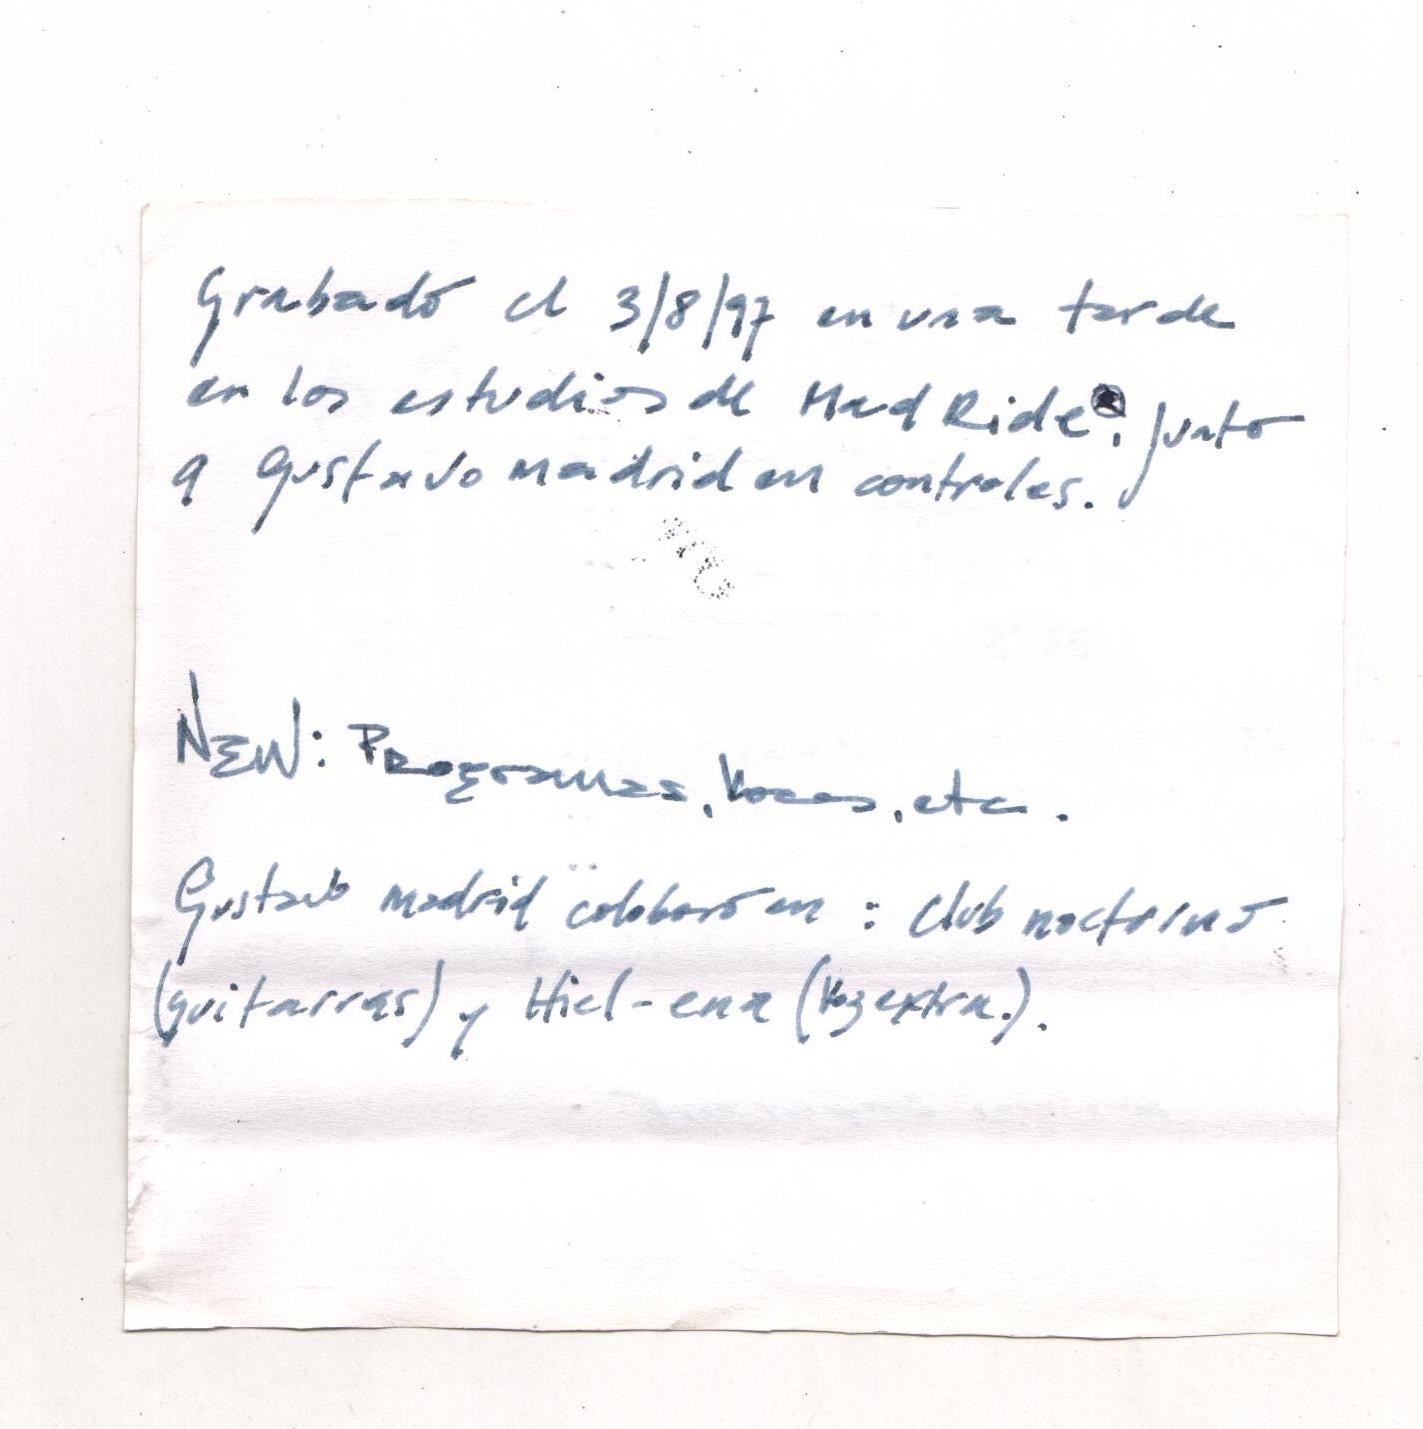 Grabado el 3/8/97 en una tarde
en los estudios de Mad Ride®. junto
a Gustavo madrid en controles.
NEW: Programas, Voces, etc.
Gustavo madrid colaboró en: Club nocturno
(guitarras) y Hiel-ena (Voz extra.).